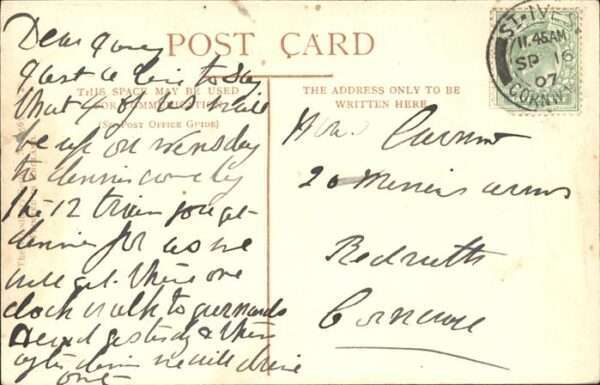 POST CARD
THIS SPACE MAY BE USED
FOR COMMUNICATION
(SEE POST OFFICE GUIDE)
THE ADDRESS ONLY TO BE
WRITTEN HERE
ST. IVES
11.45 AM
SP 16
07
CORNWALL
Dear
Just a line to say
that 4 of us will
be up on Wensday
to dinner come by
the 12 train you get
dinner for us we
will get there one
clock walk to gurnards
Head yesterday & then
after dinner we will drive
out
20 Miners arms
Redruth
Cornwall